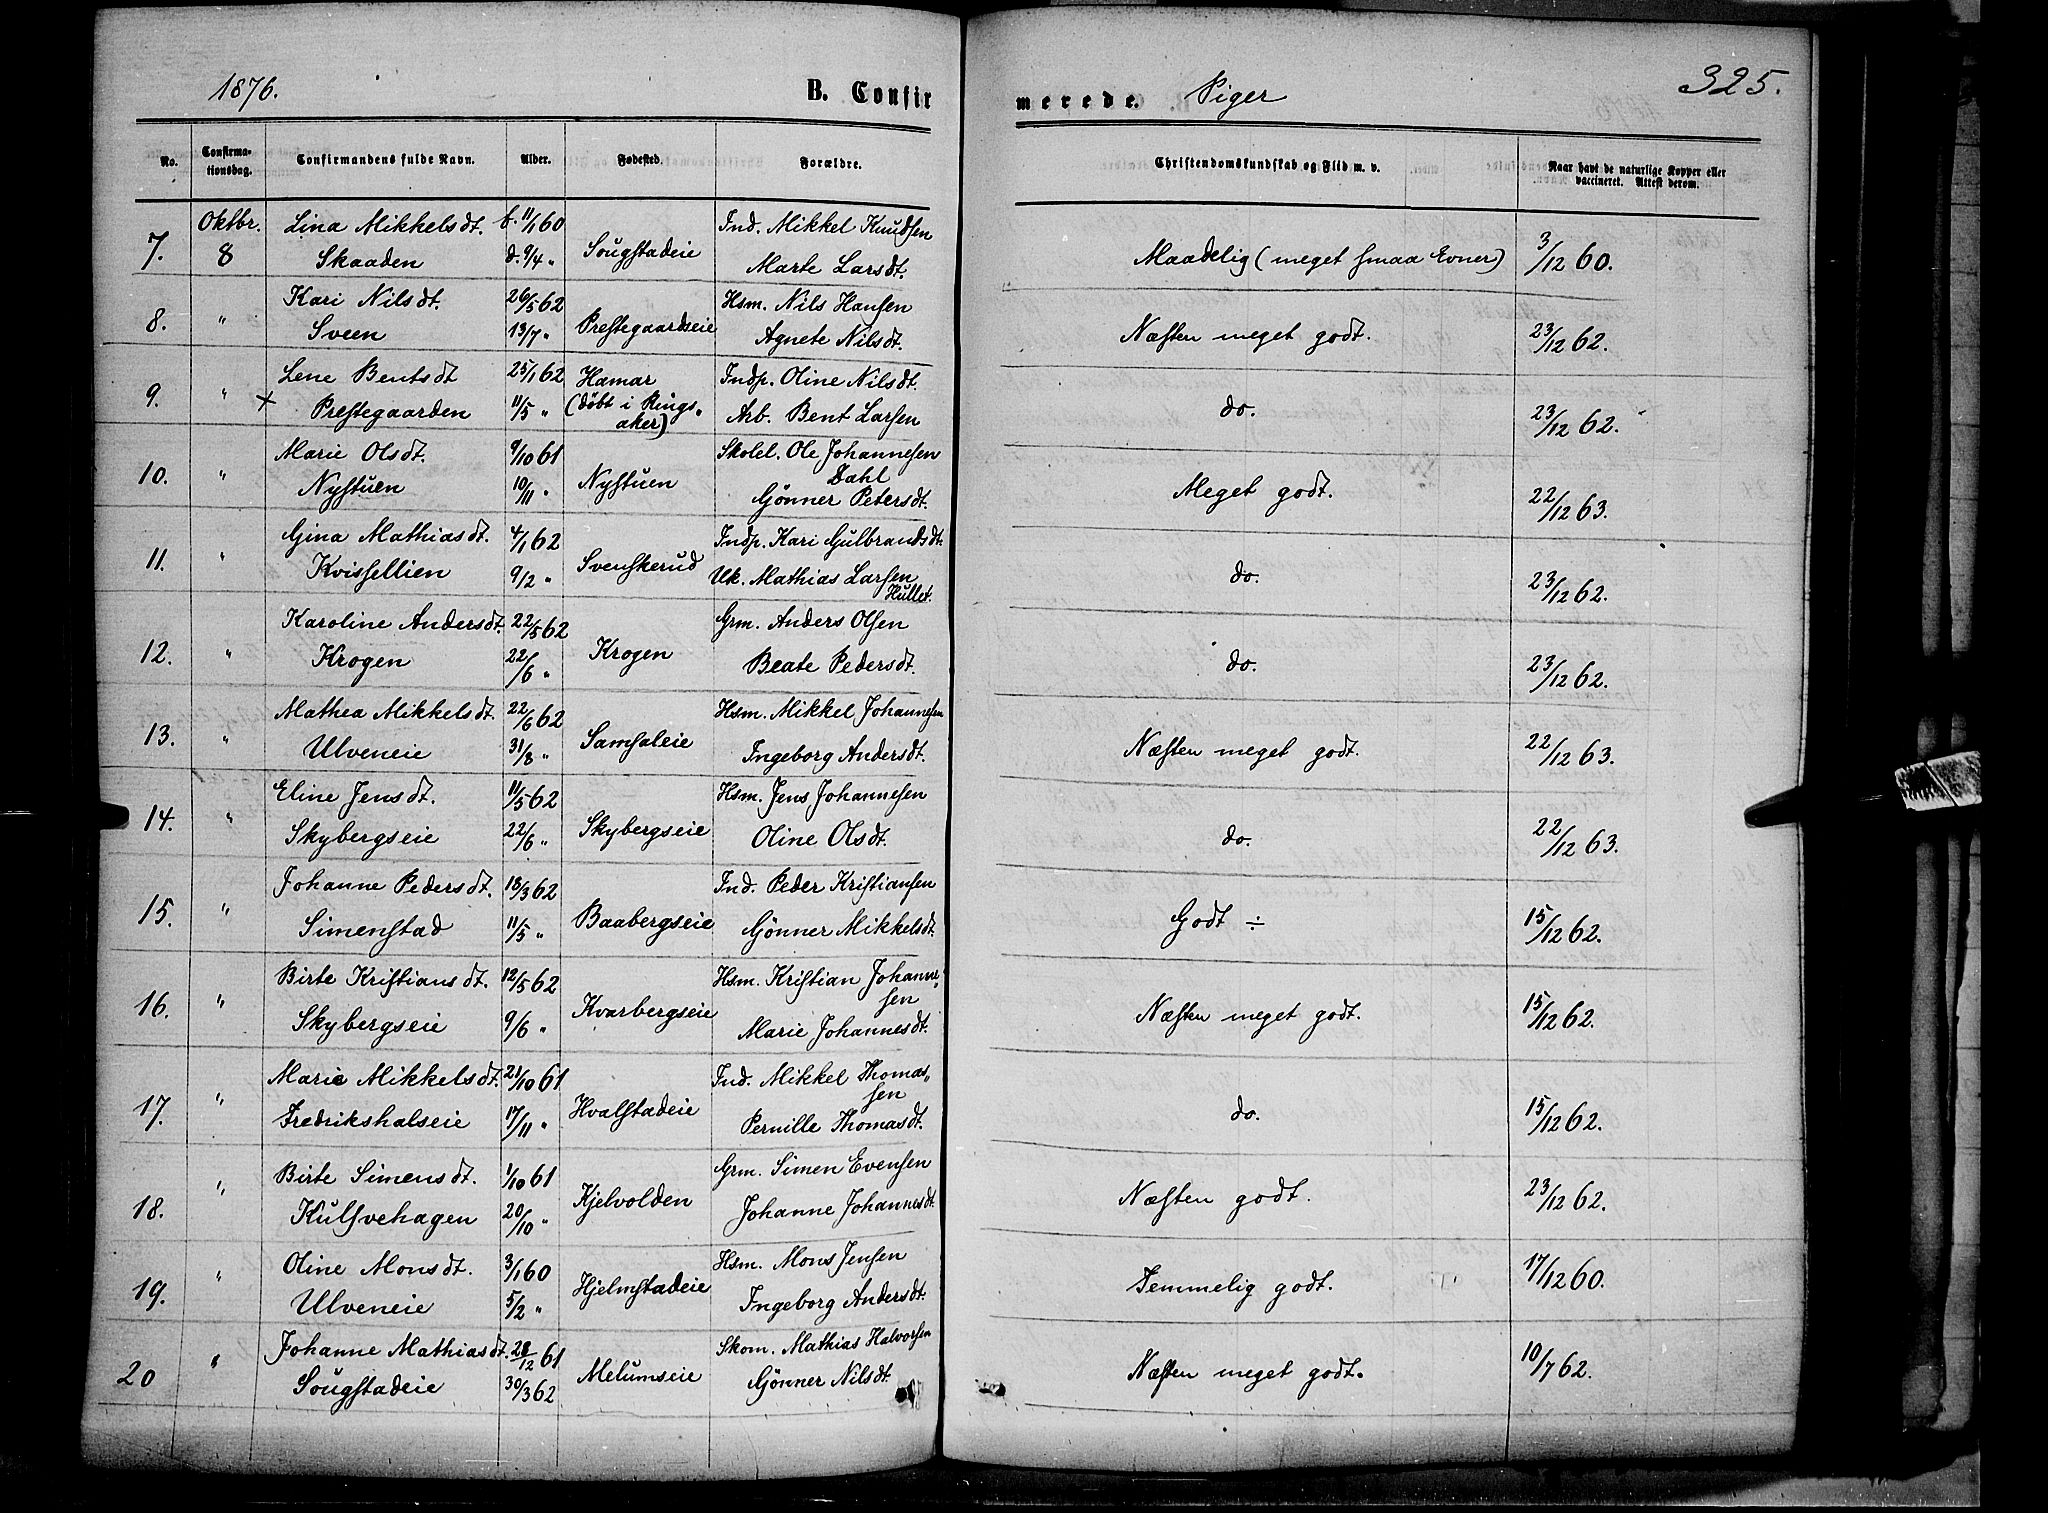 1876. B. Confirmerede. Piger 325.
No. Confirmationsdag. Confirmandens fulde Navn. Alder. Fødested. Forældre. Christendomskundskab og Flid m. v. Naar havt de naturlige Kopper eller vaccineret. Attest derom.
Oktbr. Lina Mikkelsdt. f. 11/1 60 Ind. Mikkel Knudsen
7. 8 Skaaden d. 9/4 " Sougstadeie Marte Larsdt. Maadelig (meget smaa Evner) 3/12 60.
Kari Nilsdt. 26/5 62 Hsm. Nils Hansen
8. " Sveen 13/7 " Prestegaardseie Agnete Nilsdt. Næsten meget godt. 23/12 62.
Lene Bentsdt 25/1 62 Hamar Indp. Oline Nilsdt.
9. " × Prestegaarden 11/5 " (døbt i Ringsaker) Arb. Bent Larsen do. 23/12 62.
Marie Olsdt. 9/10 61 Skolel. Ole Johannesen Dahl
10. " Nystuen 10/11 " Nystuen Gønner Petersdt. Meget godt. 22/12 63.
Gina Mathiasdt. 4/1 62 Indp. Kari Gulbrandsdt.
11. " Kvissellien 9/2 " Svenskerud Uk. Mathias Larsen Hullet. do. 23/12 62.
Karoline Andersdt. 22/5 62 Grm. Anders Olsen
12. " Krogen 22/6 " Krogen Beate Pedersdt. do. 23/12 62.
Mathea Mikkelsdt. 22/6 62 Hsm. Mikkel Johannesen
13. " Ulveneie 31/8 " Samsaleie Ingeborg Andersdt. Næsten meget godt. 22/12 63.
Eline Jensdt. 11/5 62 Hsm. Jens Johannesen
14. " Skybergseie 22/6 " Skybergseie Oline Olsdt. do. 22/12 63.
Johanne Pedersdt. 18/3 62 Ind. Peder Kristiansen
15. " Simenstad 11/5 " Baabergseie Gønner Mikkelsdt. Godt ÷ 15/12 62.
Birte Kristiansdt. 12/5 62 Hsm. Kristian Johannesen
16. " Skybergseie 9/6 " Kvarbergseie Marie Johannesdt. Næsten meget godt. 15/12 62.
Marie Mikkelsdt. 21/10 61 Ind. Mikkel Thomassen
17. " Fredrikshalseie 17/11 " Hvalstadeie Pernille Thomasdt. do. 15/12 62.
Birte Simensdt. 1/10 61 Grm. Simen Evensen
18. " Kulsvehagen 20/10 " Kjelvolden Johanne Johannesdt. Næsten godt. 23/12 62.
Oline Monsdt. 3/1 60 Hsm. Mons Jensen
19. " Ulveneie 5/2 " Hjelmstadeie Ingeborg Andersdt. Temmelig godt. 17/12 60.
Johanne Mathiasdt. 28/12 61 Skom. Mathias Halvorsen
20 " Sougstadeie 30/3 62 Melumseie Gønner Nilsdt. Næsten meget godt. 10/7 62.